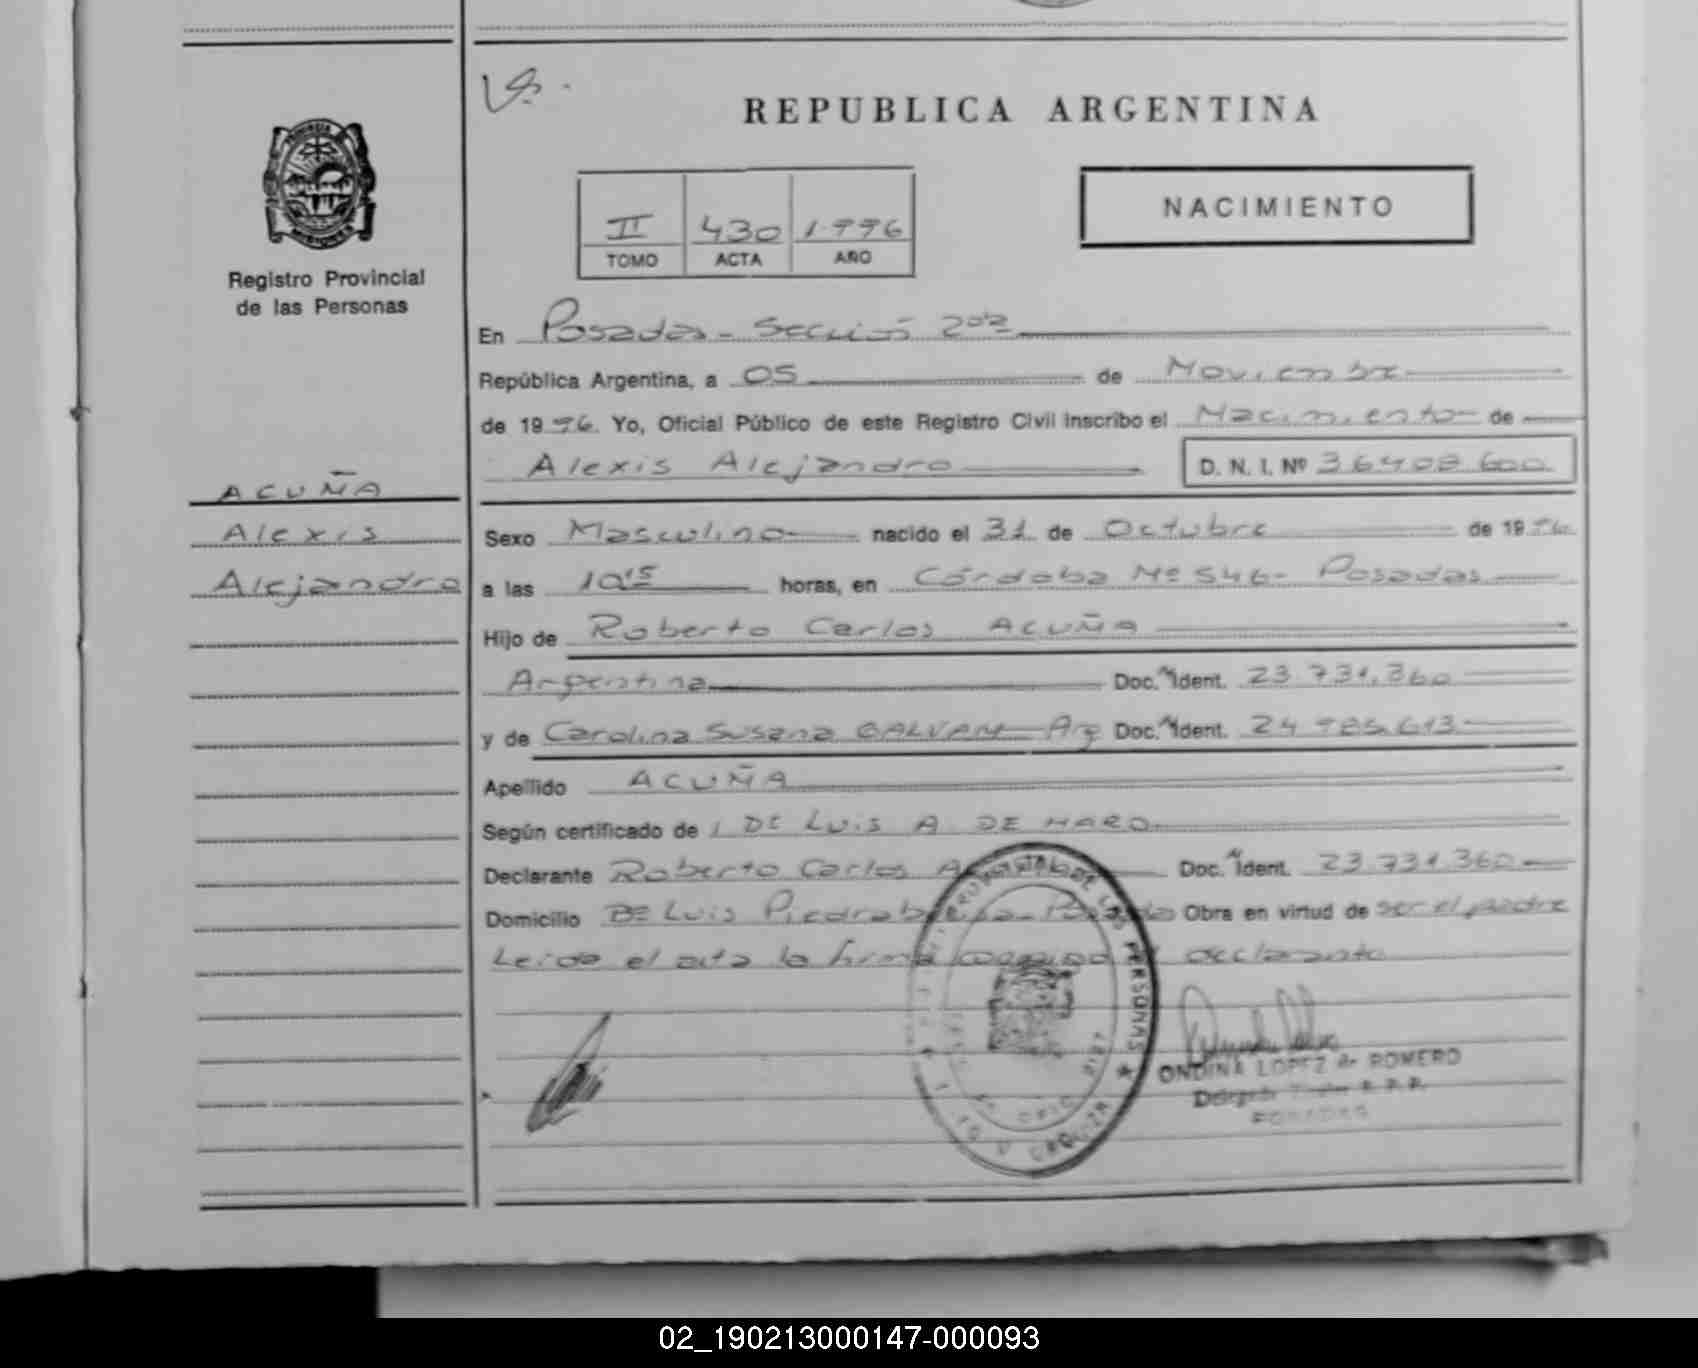 REPUBLICA ARGENTINA
NACIMIENTO
II 430 1996
TOMO ACTA AÑO
PROVINCIA
MISIONES
Registro Provincial
de las Personas
ACUÑA
Alexis
Alejandro
En Posadas - Sección 2da
República Argentina, a 05 de Noviembre
de 1996. Yo, Oficial Público de este Registro Civil inscribo el Nacimiento de
Alexis Alejandro D. N. I. Nº 36408600
Sexo Masculino nacido el 31 de Octubre de 1996
a las 10:15 horas, en Córdoba Nº 546 - Posadas
Hijo de Roberto Carlos ACUÑA
Argentina Doc. N Ident. 23.731.360
y de Carolina Susana GALVAN Arg Doc. N Ident.
Apellido ACUÑA
Según certificado de DE LUIS A DE HARO
Declarante Roberto Carlos Doc. N Ident. 23.731.360
Domicilio Bº Luis Piedrabuena - Posadas Obra en virtud de ser el padre
Leida el acta la firma declarante
PERSONAS
URQUIZA
ONDINA LOPEZ de ROMERO
Delegada Titular R. P. P.
POSADAS
02_190213000147-000093